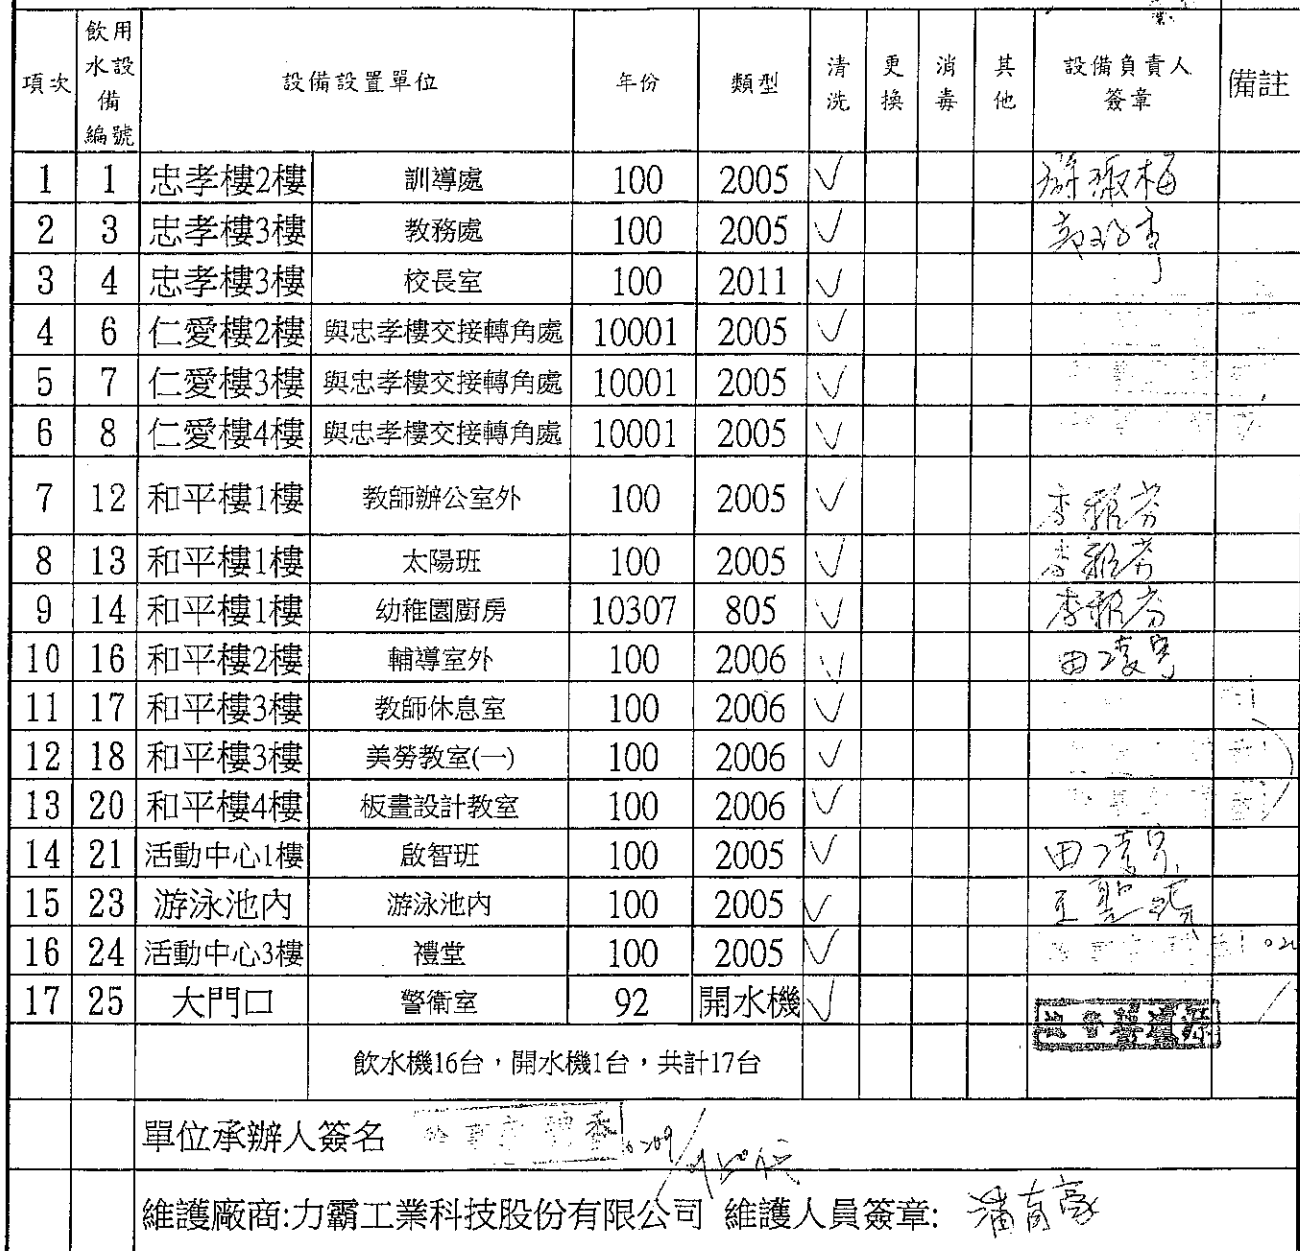 項次 飲用水設備編號 設備設置單位 年份 類型 清洗 更換 消毒 其他 設備負責人簽章 備註
1 1 忠孝樓2樓 訓導處 100 2005 ✓
2 3 忠孝樓3樓 教務處 100 2005 ✓
3 4 忠孝樓3樓 校長室 100 2011 ✓
4 6 仁愛樓2樓 與忠孝樓交接轉角處 10001 2005 ✓
5 7 仁愛樓3樓 與忠孝樓交接轉角處 10001 2005 ✓
6 8 仁愛樓4樓 與忠孝樓交接轉角處 10001 2005 ✓
7 12 和平樓1樓 教師辦公室外 100 2005 ✓ 李雅芬
8 13 和平樓1樓 太陽班 100 2005 ✓ 李雅芬
9 14 和平樓1樓 幼稚園廚房 10307 805 ✓ 李雅芬
10 16 和平樓2樓 輔導室外 100 2006 ✓
11 17 和平樓3樓 教師休息室 100 2006 ✓
12 18 和平樓3樓 美勞教室(一) 100 2006 ✓
13 20 和平樓4樓 板畫設計教室 100 2006 ✓
14 21 活動中心1樓 啟智班 100 2005 ✓
15 23 游泳池內 游泳池內 100 2005 ✓
16 24 活動中心3樓 禮堂 100 2005 ✓
17 25 大門口 警衛室 92 開水機 ✓
飲水機16台，開水機1台，共計17台
單位承辦人簽名
維護廠商:力霸工業科技股份有限公司 維護人員簽章: